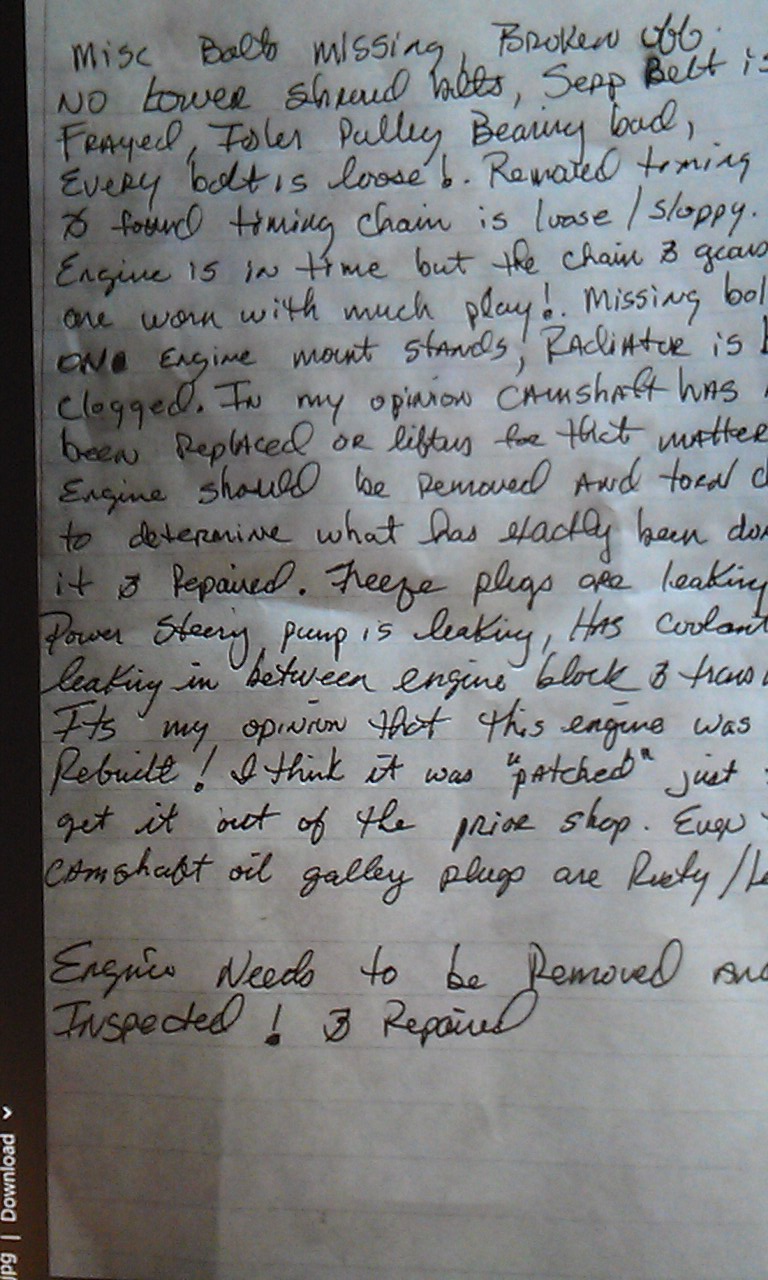 Misc Bolts missing, Broken off.
NO Lower shroud bolts, Serp Belt is
Frayed, Idler Pulley Bearing bad,
Every bolt is loose !. Removed timing
& found timing chain is loose / sloppy.
Engine is in time but the chain & gears
are worn with much play!. Missing bol
ON Engine mount stands, RAdiAtor is
Clogged. In my opinion CAmshAft HAS
been ReplAced or lifters for that mAtter
Engine should be Removed And torn d
to determine what has exactly been don
it & Repaired. Freeze plugs are leaking
Power Steering pump is leaking, HAS coolant
leaking in between engine block & trans
It's my opinion that this engine was
Rebuilt! I think it was "pAtched" just
get it out of the prior shop. Even
CAmshaft oil galley plugs are Rusty / Le
Engine Needs to be Removed And
Inspected! & Repaired
jpg | Download